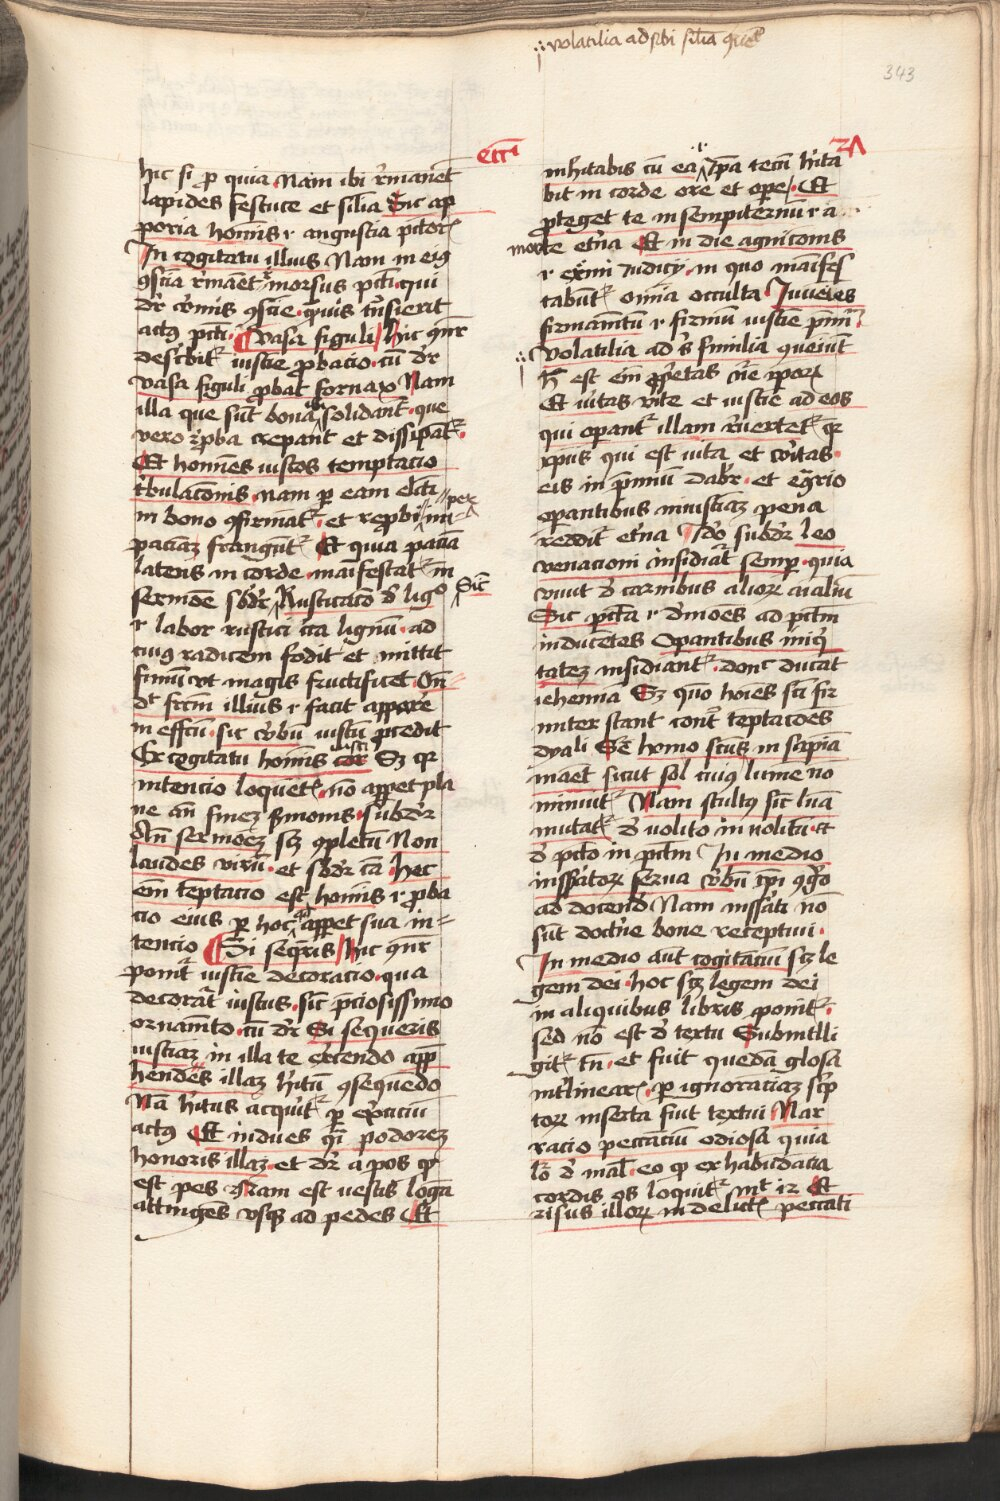 volatilia ad sibi silia
343
Ecci
hic si ꝓ quia Nam ibi r̄manēt
lapides festuce et silia Sic ap
poria homīs r angustia
In cogitatu illius Nam in eiꝰ
9scīa r̄manet morsus pcti qui
dr̄ v̄mis 9scīe qͣuis tn̄sierit
actꝰ pcti Vasa figuli Hic 9nr̄
descbit iusticie ꝓbacio cū dr̄
vasa figuli ꝓbat fornax Nam
illa que sūt bona solidant que
vero rꝓba crepant et dissipāt
Et homīes iustos temptacio
tbulacōnis nam ꝑ eam elcti
in bono 9firmāt et reꝓbi ī ꝑ
paciaz frangūt Et quia pacīa
latens in corde maīfestat in
sermōe sbdr̄ Rusticacō d̄ ligo Sic
r labor rustici circa lignū ad
cuiꝰ radicem fodit et mittit
fimū vt magis fructificet On
dt frctm illius r facit apparē
in effctū sic vbū iustū ꝓcedit
Ex cogitatu homīs cor Sz qr
intencio loquēt nō apparet pla
ne an̄ finez smonis subdr̄
An̄ sermoēz sz 9pletū Non
laudes virū et sbdr̄ cā Hec
em̄ temptacio est homīs r ꝓba
cio eius ꝑ hoc appet sua in
tencio Si seq̄ris Hic 9nr̄
ponit iusticie decoracio qua
decorat iustus sic pciosissimo
ornamto cū dr̄ Si sequeris
iusticiaz in illa te exercendo app
hendes illaz hītū 9sequēdo
Nā hītus acquirit ꝑ exerciciū
actꝰ Et indues qͣi poderez
honoris illaz et dr̄ a pos qͩ
est pes Nam est vestis longa
attingēs vsqꝫ ad pedes Et
ZΛ
inhitabis cū ea ipa tecū hīta
bit in corde ore et ope Et
ꝓteget te in sempiternū r a
morte et̄na Et in die agnicōnis
r exīmi iudicij in quo maīfes
tabūt omīa occulta Inueīes
firmamtū r firmū iusticie
Volatilia ad s silia queiūt
Et vitas vite et iusticie ad eos
qui operant illam r̄uertet qr
xpus qui est vita et vitas
eis in p̄miū dabr et eqrio
opantibus iniusticiaz pena
reddit et̄na Ido subdr̄ leo
venacioni insidiat semp quia
viuit d̄ carnibus alioꝝ aīaliū
Sic pcta r dmoēs ad pctm
inducentes Opantibus iniq̄
tatez insidiant donc ducāt
iehenna Sz quo hoīes scti fir
miter stant cont̄ teptacōes
dyali Sed homo sctus in sapīa
manet sicut sol cuiꝰ lumē nō
minuit Nam stultꝰ sic luna
mutat d̄ volito in nolitū et
d̄ pcto in pctm In medio
insensatoꝝ serua vbū tpi 9gͦuo
ad docendū Nam insēsati nō
sūt doctne bone receptiui
In medio aut cogitaciū scz le
gem dei hoc scz legem dei
in aliquibus libris ponit
sed nō est d̄ textu Subintelli
git tn̄ et fuit quedā glosa
intlinear ꝑ ignoranciaz scp
toꝝ inserta fuit textui Nar
racio peccanciū odiosa quia
lr̄ d̄ mal eo qͩ ex habūdācia
cordis os loquit mt 12 Et
risus illoꝝ in delict peccati